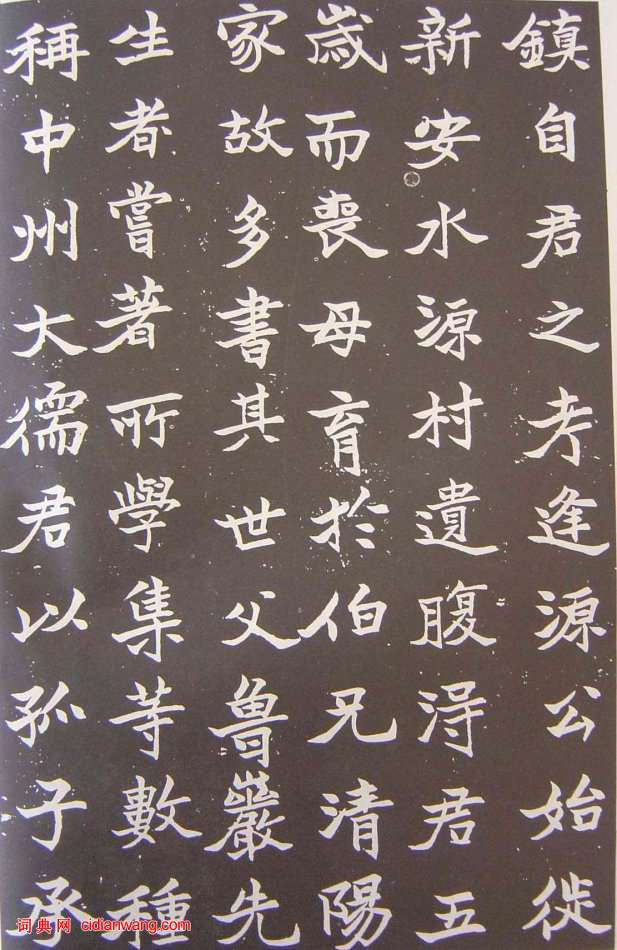 鎮自君之考逢源公始徙
新安水源村遺腹淂君五
歲而喪母育於伯兄清陽
家故多書其世父魯巖先
生者嘗著所學集等數種
稱中州大儒君以孤子承
词典网 cidianwang.com